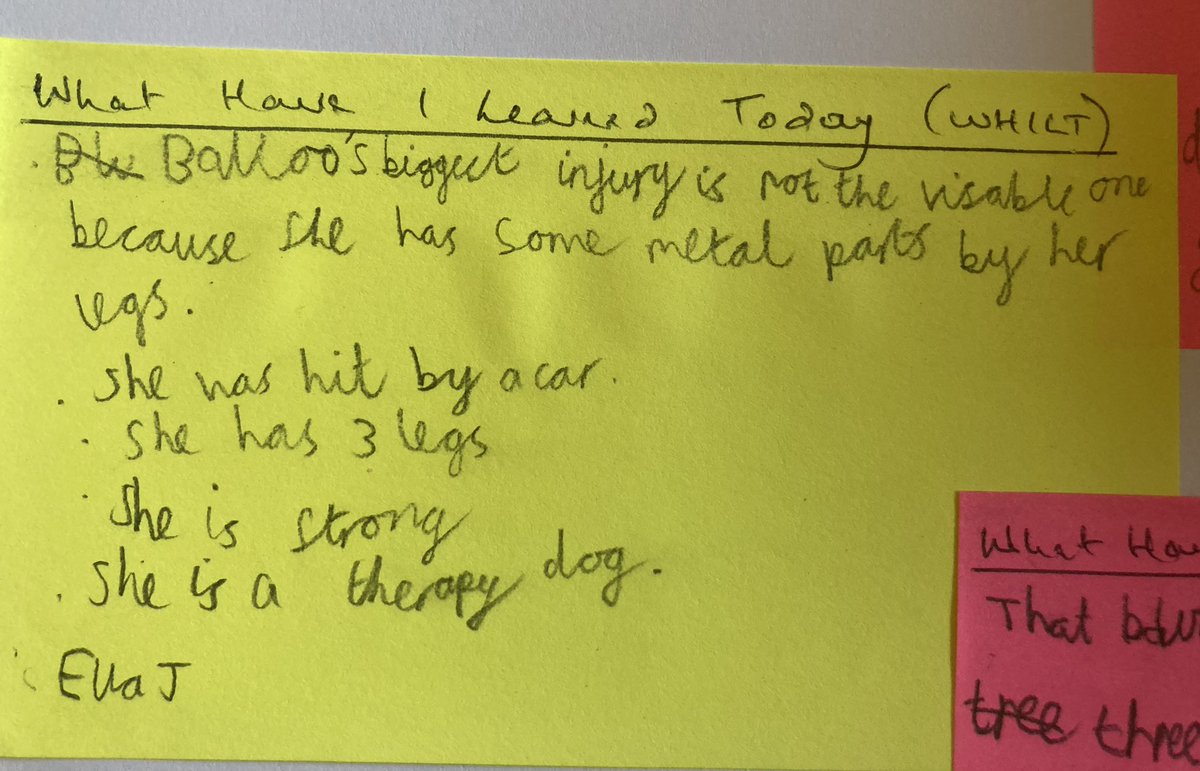 What Have I Learned Today (WHILT)
. Balloo's biggest injury is not the visable one
because she has some metal parts by her
legs.
. she was hit by a car.
. she has 3 legs
. She is strong
. She is a therapy dog.
Ella J
What Hav
That
tree three